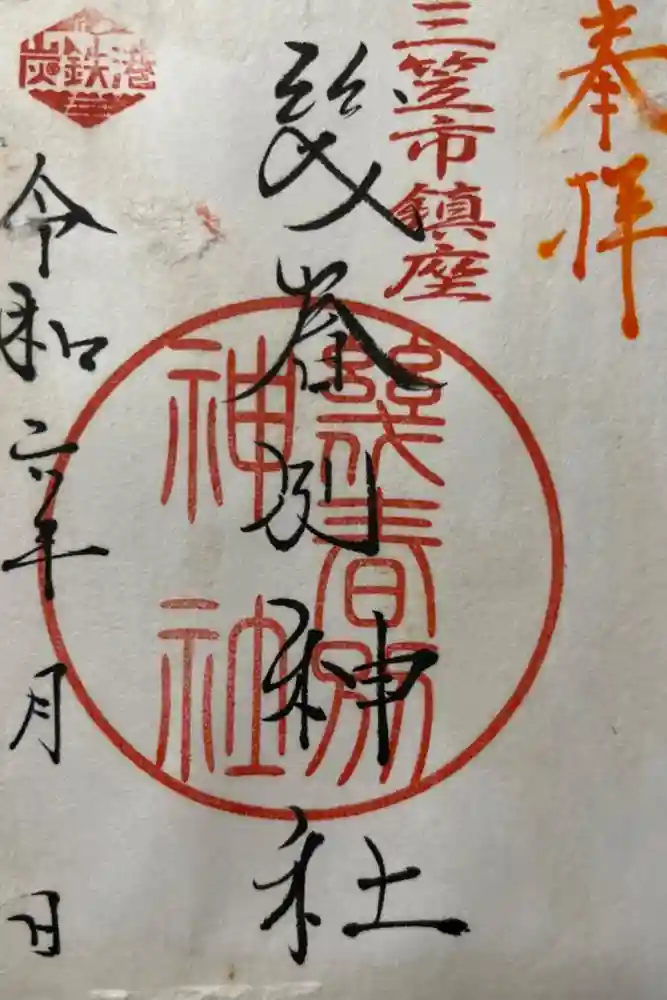 奉拝
三笠市鎮座
幾春別神社
幾春別
神社
炭鉄港
令和六年 月 日